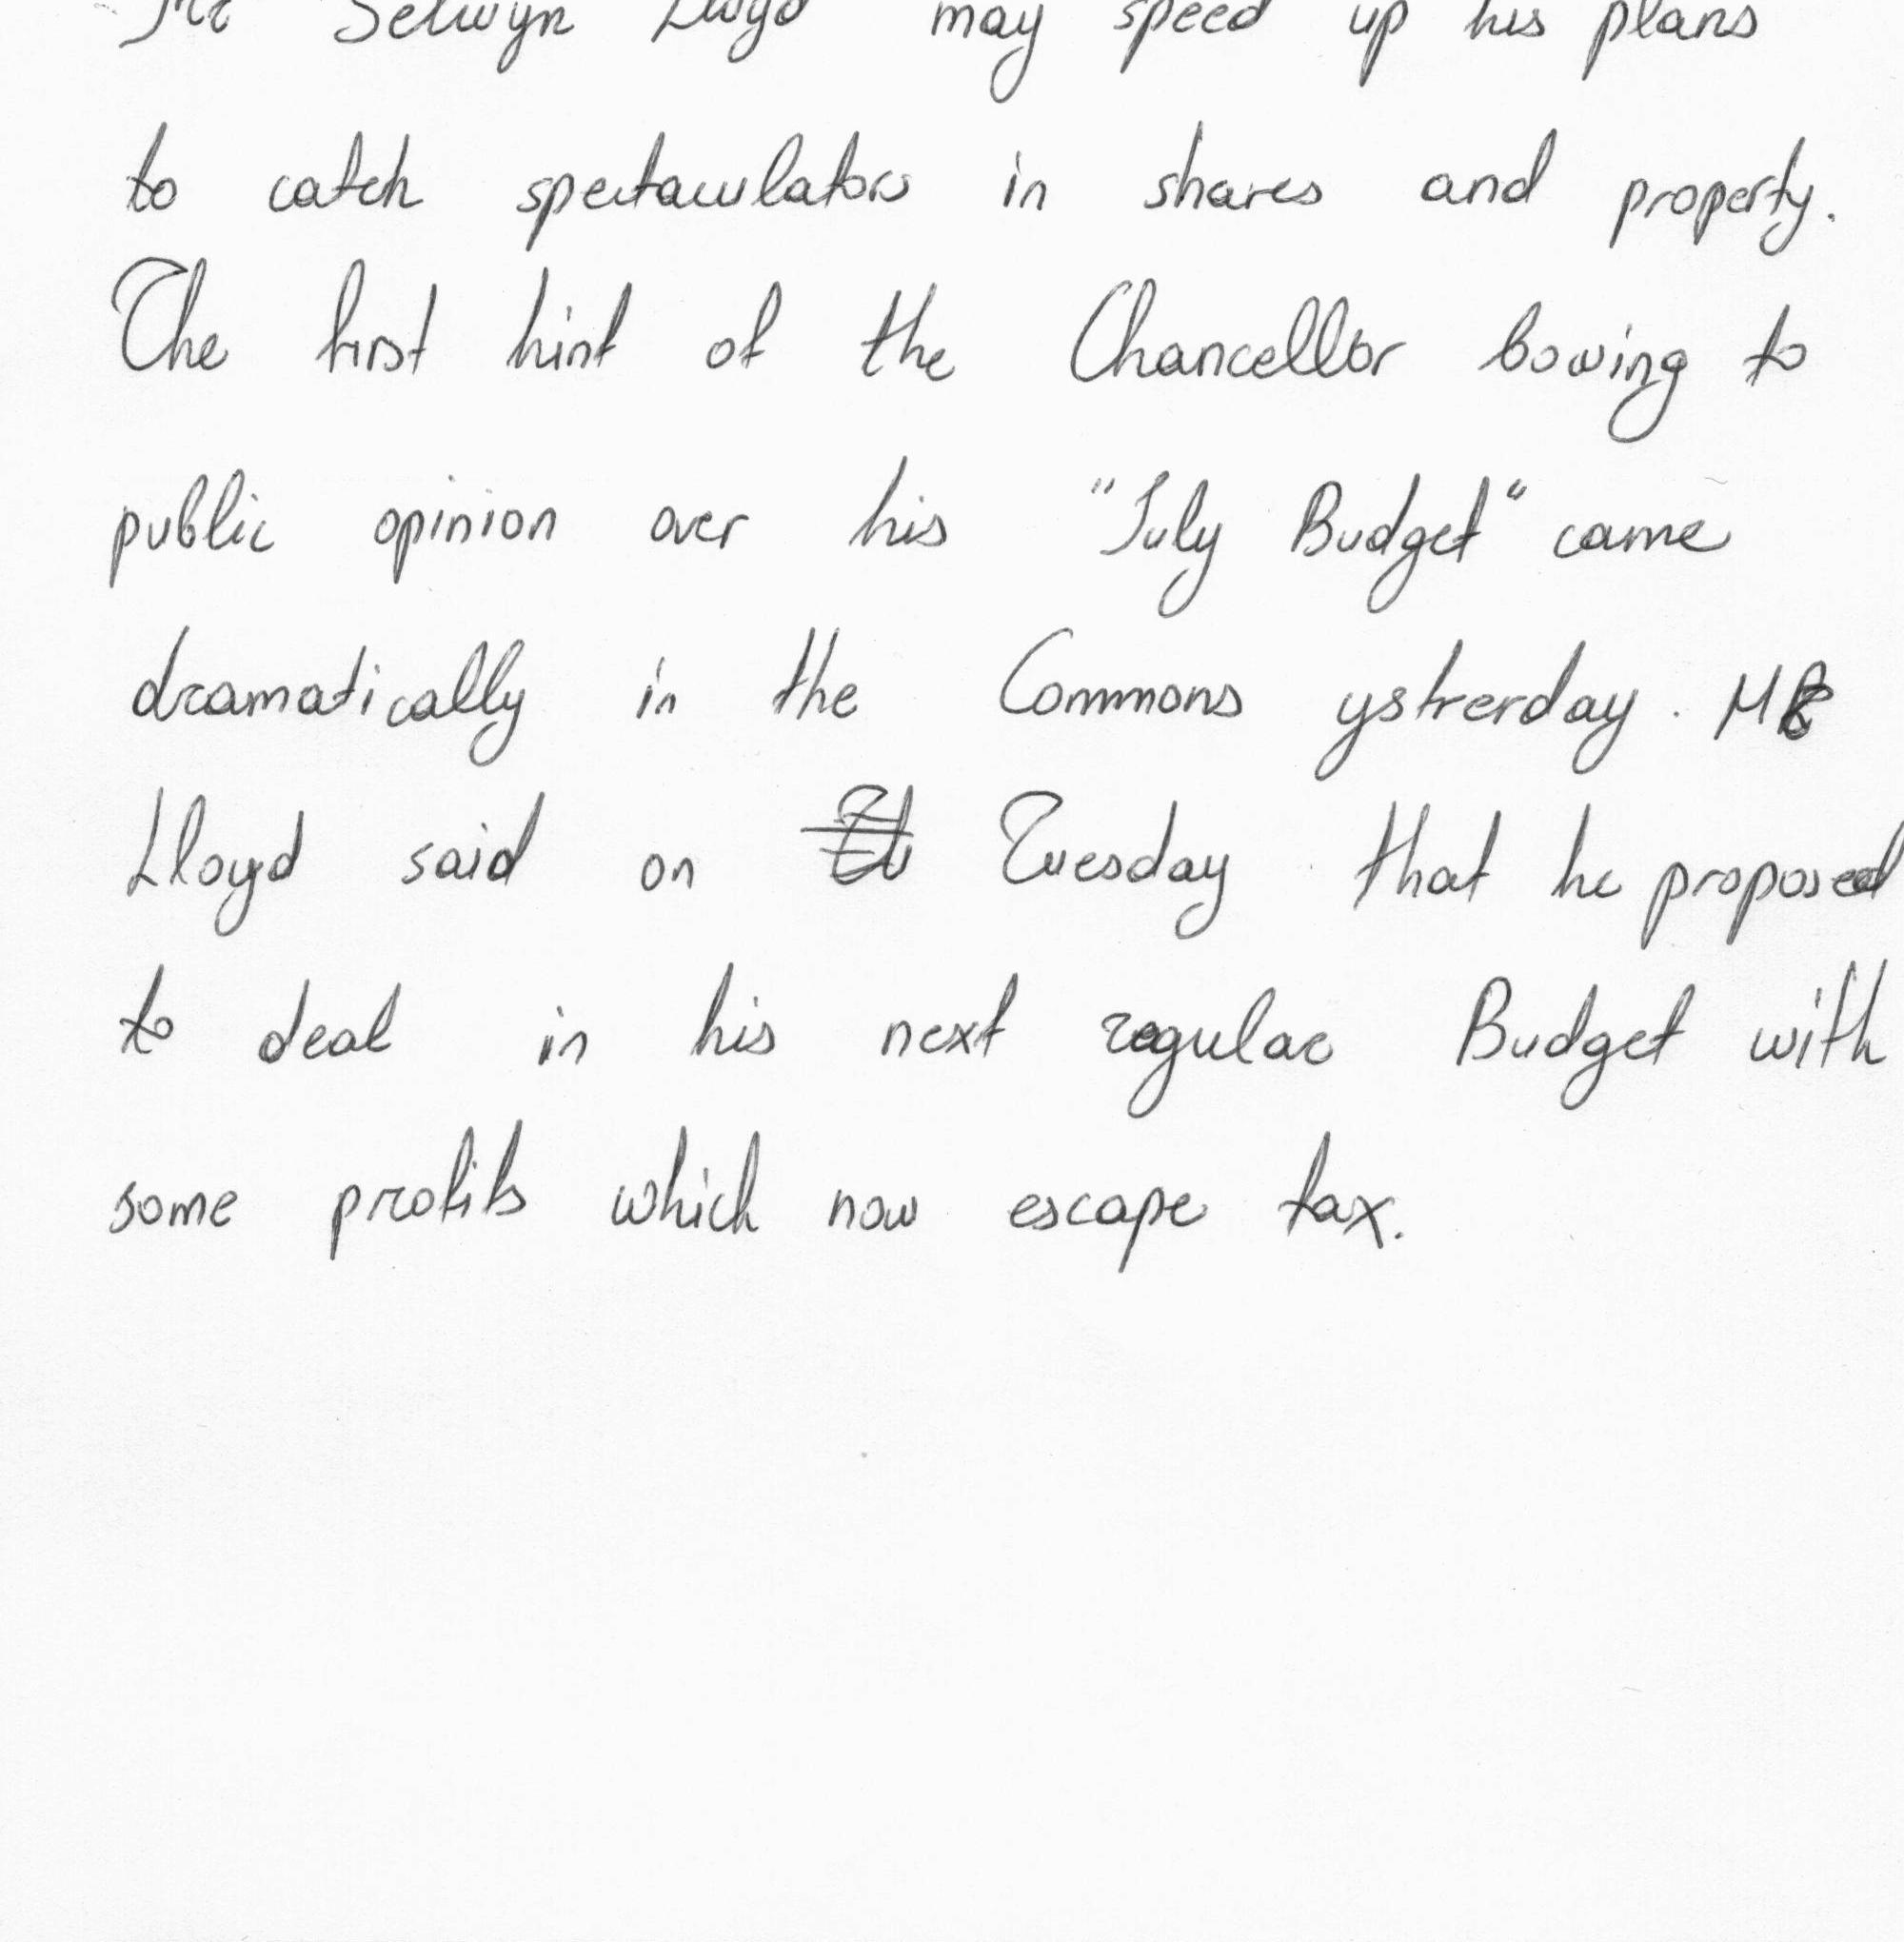 Mr Selwyn Lloyd may speed up his plans
to catch spectaculators in shares and property.
The first hint of the Chancellor bowing to
public opinion over his "July Budget" came
dramatically in the Commons ystrerday. Mr
Lloyd said on Tuesday that he proposed
to deal in his next regular Budget with
some profits which now escape tax.